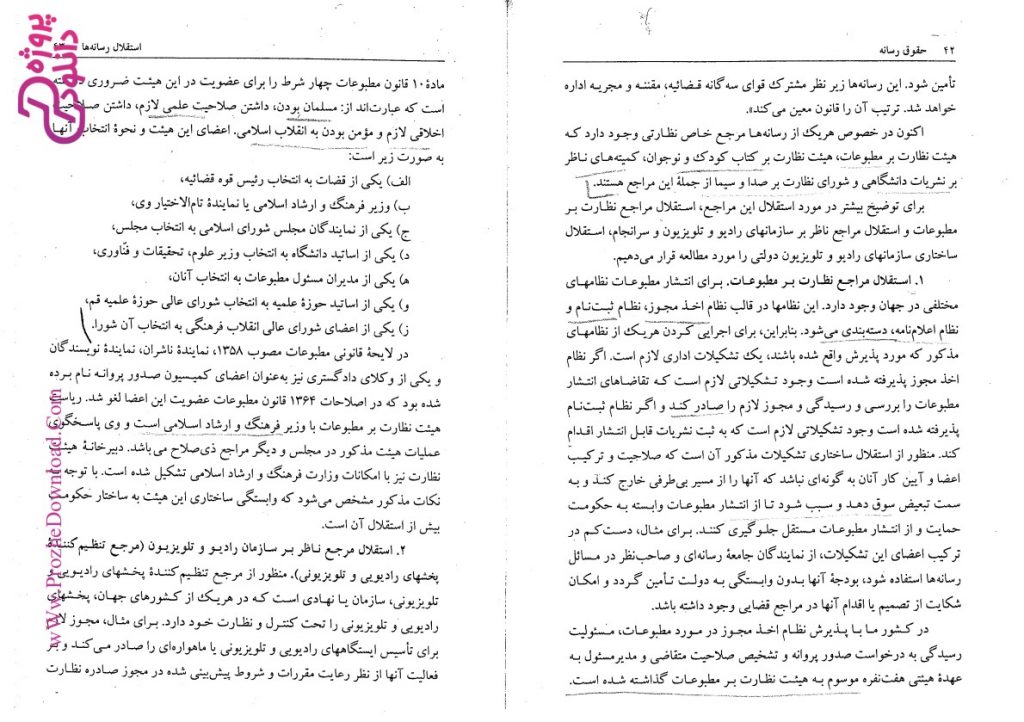 ۴۲ حقوق رسانه
تأمین شود. این رسانه‌ها زیر نظر مشترک قوای سه‌گانه قضائیه، مقننه و مجریه اداره
خواهد شد. ترتیب آن را قانون معین می‌کند».
اکنون در خصوص هریک از رسانه‌ها مرجع خاص نظارتی وجود دارد که
هیئت نظارت بر مطبوعات، هیئت نظارت بر کتاب کودک و نوجوان، کمیته‌های ناظر
بر نشریات دانشگاهی و شورای نظارت بر صدا و سیما از جملهٔ این مراجع هستند.
برای توضیح بیشتر در مورد استقلال این مراجع، استقلال مراجع نظارت بر
مطبوعات و استقلال مراجع ناظر بر سازمانهای رادیو و تلویزیون و سرانجام، استقلال
ساختاری سازمانهای رادیو و تلویزیون دولتی را مورد مطالعه قرار می‌دهیم.
۱. استقلال مراجع نظارت بر مطبوعات. برای انتشار مطبوعات نظامهای
مختلفی در جهان وجود دارد. این نظامها در قالب نظام اخذ مجوز، نظام ثبت‌نام و
نظام اعلام‌نامه، دسته‌بندی می‌شود. بنابراین، برای اجرایی کردن هریک از نظامهای
مذکور که مورد پذیرش واقع شده باشند، یک تشکیلات اداری لازم است. اگر نظام
اخذ مجوز پذیرفته شده است وجود تشکیلاتی لازم است که تقاضاهای انتشار
مطبوعات را بررسی و رسیدگی و مجوز لازم را صادر کند و اگر نظام ثبت‌نام
پذیرفته شده است وجود تشکیلاتی لازم است که به ثبت نشریات قابل انتشار اقدام
کند. منظور از استقلال ساختاری تشکیلات مذکور آن است که صلاحیت و ترکیب
اعضا و آیین کار آنان به گونه‌ای نباشد که آنها را از مسیر بی‌طرفی خارج کند و به
سمت تبعیض سوق دهد و سبب شود تا از انتشار مطبوعات وابسته به حکومت
حمایت و از انتشار مطبوعات مستقل جلوگیری کنند. برای مثال، دست‌کم در
ترکیب اعضای این تشکیلات، از نمایندگان جامعهٔ رسانه‌ای و صاحب‌نظر در مسائل
رسانه‌ها استفاده شود، بودجهٔ آنها بدون وابستگی به دولت تأمین گردد و امکان
شکایت از تصمیم یا اقدام آنها در مراجع قضایی وجود داشته باشد.
در کشور ما با پذیرش نظام اخذ مجوز در مورد مطبوعات، مسئولیت
رسیدگی به درخواست صدور پروانه و تشخیص صلاحیت متقاضی و مدیرمسئول به
عهدهٔ هیئتی هفت‌نفره موسوم به هیئت نظارت بر مطبوعات گذاشته شده است.
استقلال رسانه‌ها
مادهٔ ۱۰ قانون مطبوعات چهار شرط را برای عضویت در این هیئت ضروری
است که عبارت‌اند از: مسلمان بودن، داشتن صلاحیت علمی لازم، داشتن صلاحیت
اخلاقی لازم و مؤمن بودن به انقلاب اسلامی. اعضای این هیئت و نحوهٔ انتخاب آنها
به صورت زیر است:
الف) یکی از قضات به انتخاب رئیس قوه قضائیه،
ب) وزیر فرهنگ و ارشاد اسلامی یا نمایندهٔ تام‌الاختیار وی،
ج) یکی از نمایندگان مجلس شورای اسلامی به انتخاب مجلس،
د) یکی از اساتید دانشگاه به انتخاب وزیر علوم، تحقیقات و فنّاوری،
ه) یکی از مدیران مسئول مطبوعات به انتخاب آنان،
و) یکی از اساتید حوزهٔ علمیه به انتخاب شورای عالی حوزهٔ علمیه قم،
ز) یکی از اعضای شورای عالی انقلاب فرهنگی به انتخاب آن شورا.
در لایحهٔ قانونی مطبوعات مصوب ۱۳۵۸، نمایندهٔ ناشران، نمایندهٔ نویسندگان
و یکی از وکلای دادگستری نیز به‌عنوان اعضای کمیسیون صدور پروانه نام برده
شده بود که در اصلاحات ۱۳۶۴ قانون مطبوعات عضویت این اعضا لغو شد. ریاست
هیئت نظارت بر مطبوعات با وزیر فرهنگ و ارشاد اسلامی است و وی پاسخگوی
عملیات هیئت مذکور در مجلس و دیگر مراجع ذی‌صلاح می‌باشد. دبیرخانهٔ هیئت
نظارت نیز با امکانات وزارت فرهنگ و ارشاد اسلامی تشکیل شده است. با توجه
نکات مذکور مشخص می‌شود که وابستگی ساختاری این هیئت به ساختار حکومت
بیش از استقلال آن است.
۲. استقلال مرجع ناظر بر سازمان رادیو و تلویزیون (مرجع تنظیم‌کنندهٔ
پخشهای رادیویی و تلویزیونی). منظور از مرجع تنظیم‌کنندهٔ پخشهای رادیویی و
تلویزیونی، سازمان یا نهادی است که در هریک از کشورهای جهان، پخشهای
رادیویی و تلویزیونی را تحت کنترل و نظارت خود دارد. برای مثال، مجوز
برای تأسیس ایستگاههای رادیویی و تلویزیونی یا ماهواره‌ای را صادر می‌کند و بر
فعالیت آنها از نظر رعایت مقررات و شروط پیش‌بینی شده در مجوز صادره نظارت
پروژه
دانلود
wWw.ProzheDownload.Com